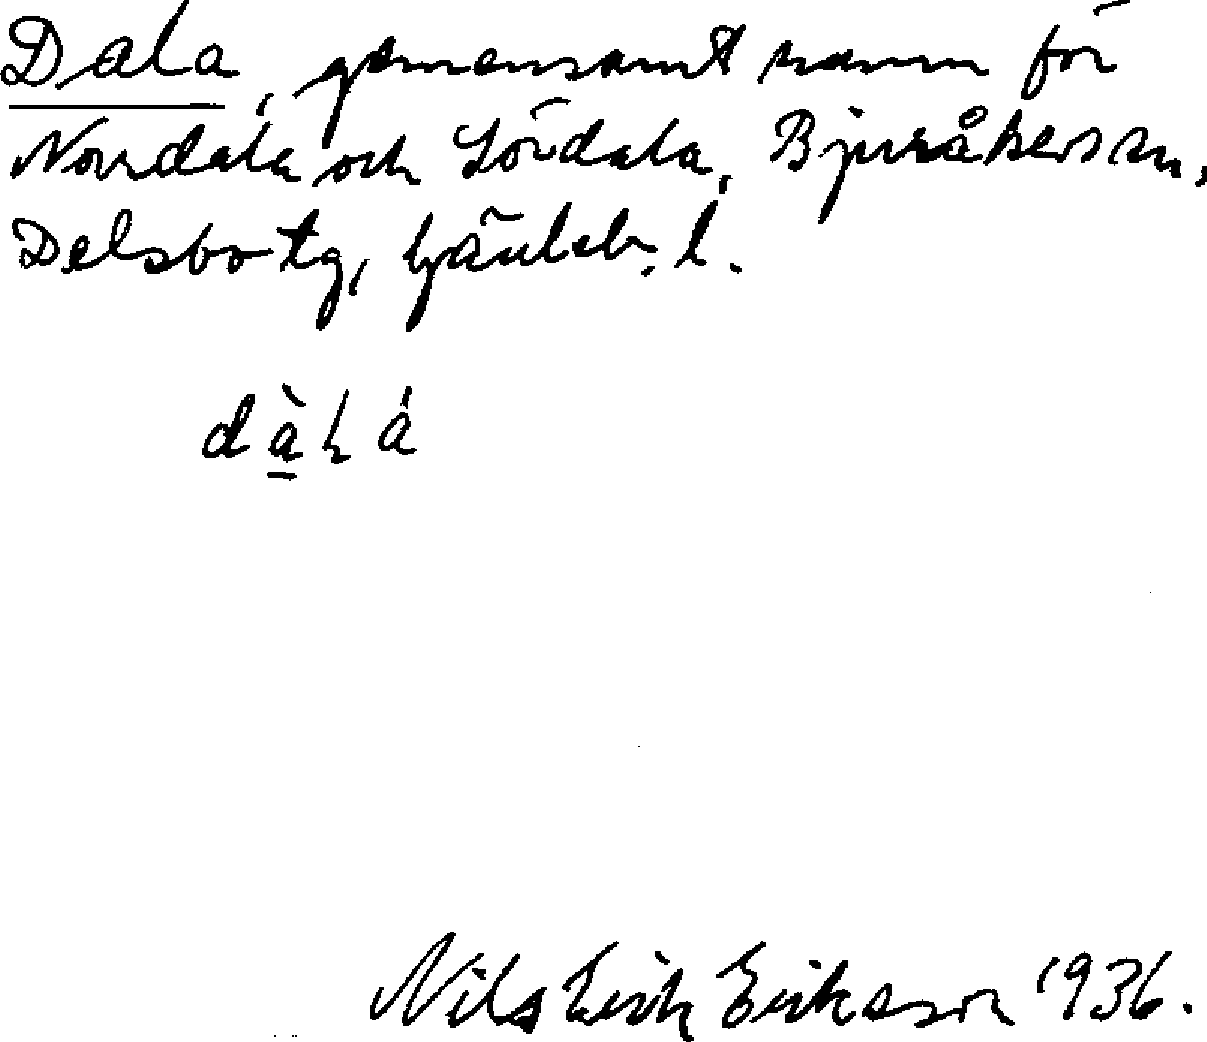 Dala, gemensamt namn för
Norrdala och Sördala, Bjuråkers sn,
Delsbo tg, Gävleb. l.
dàlá
Nils Erik Erikson 1936.